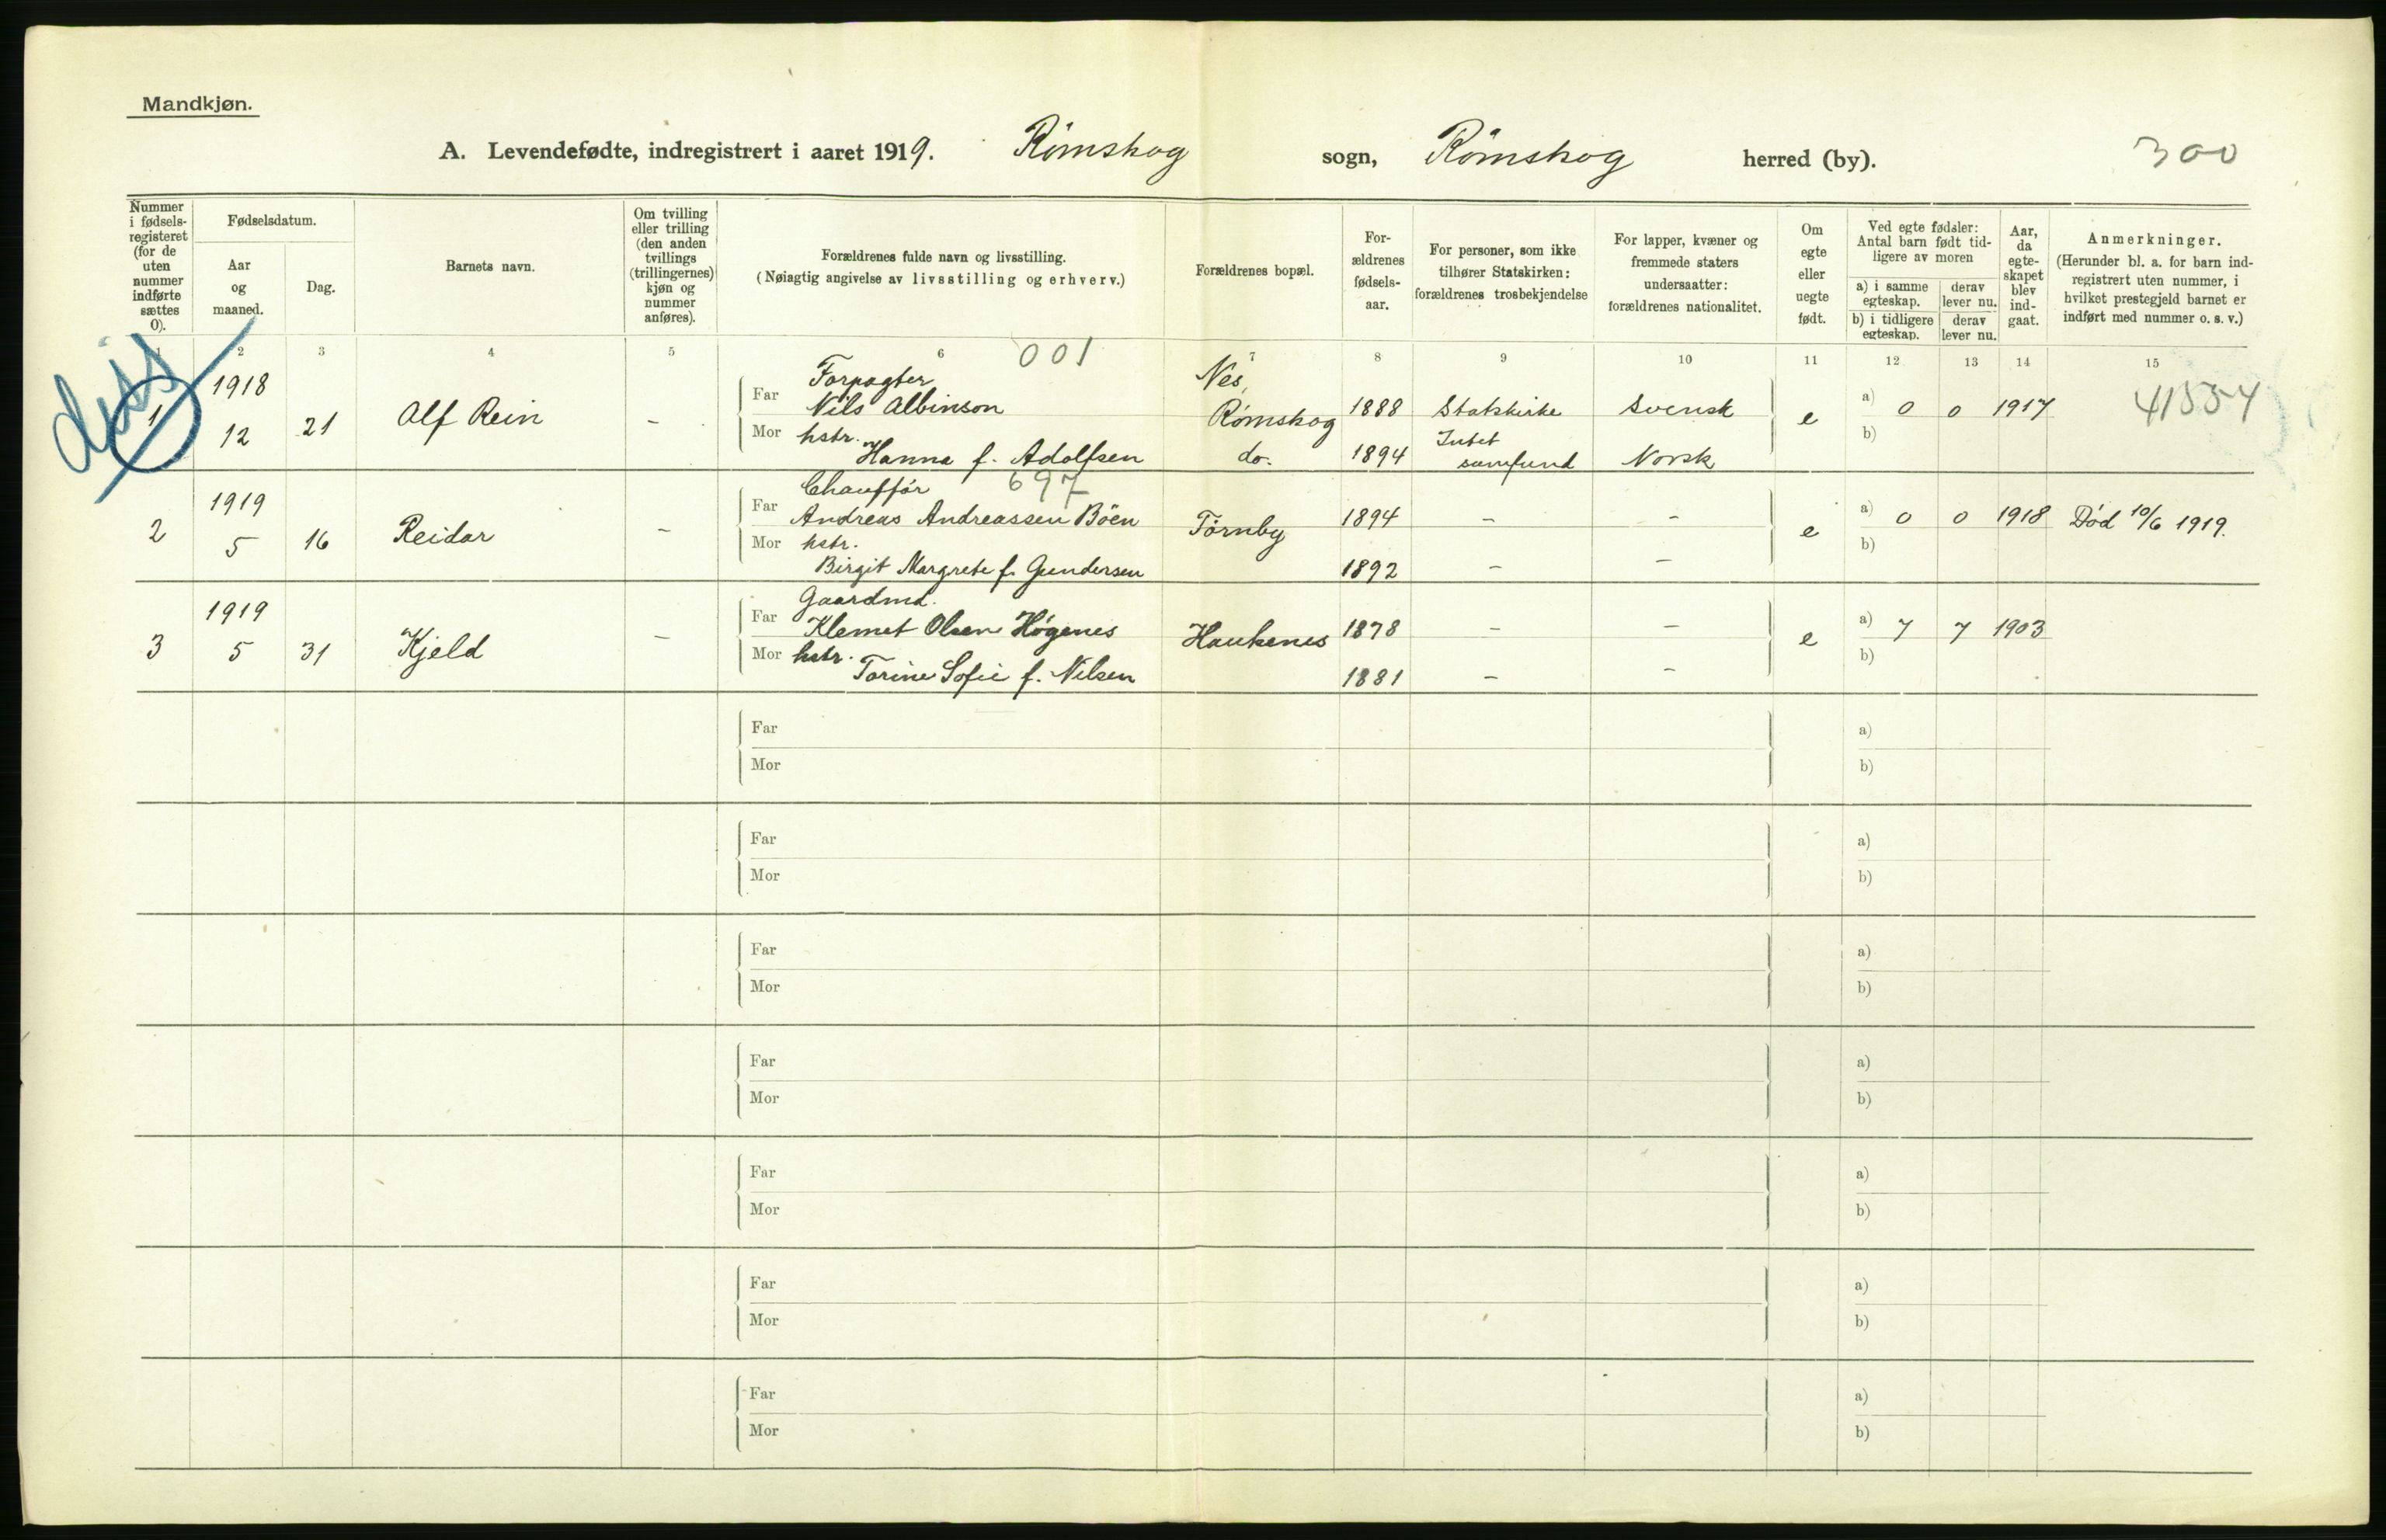 Mandkjøn.
A. Levendefødte, indregistrert i aaret 1919. Rømskog sogn, Rømskog herred (by). 300
Nummer i fødsels-registeret (for de uten nummer indførte sættes 0).
Fødselsdatum.
Aar og maaned.
Dag.
Barnets navn.
Om tvilling eller trilling (den anden tvillings (trillingernes) kjøn og nummer anføres).
Forældrenes fulde navn og livsstilling.
(Nøiagtig angivelse av livsstilling og erhverv.)
Forældrenes bopæl.
For-ældrenes fødsels-aar.
For personer, som ikke tilhører Statskirken: forældrenes trosbekjendelse
For lapper, kvæner og fremmede staters undersaatter: forældrenes nationalitet.
Om egte eller uegte født.
Ved egte fødsler: Antal barn født tid-ligere av moren
a) i samme egteskap.
derav lever nu.
b) i tidligere egteskap.
derav lever nu.
Aar, da egte-skapet blev ind-gaat.
Anmerkninger.
(Herunder bl. a. for barn ind-registrert uten nummer, i hvilket prestegjeld barnet er indført med nummer o. s. v.)
1 2 3 4 5 6 7 8 9 10 11 12 13 14 15
001
1 1918 12 21 Alf Rein -
Forpagter
Far Nils Albinson
Mor hstr.
Hanna f. Adolfsen
Nes, Rømskog
do.
1888 Statskirke Svensk
1894 Intet samfund Norsk
e a) 0 0 1917 41554
b)
697
2 1919 5 16 Reidar -
Chauffør
Far Andreas Andreassen Böen
Mor hstr.
Birgit Margrete f. Gundersen
Törnby
1894 - -
1892 - -
e a) 0 0 1918 Död 10/6 1919.
b)
3 1919 5 31 Kjeld -
Gaardmd.
Far Klemet Olsen Høgenes
Mor hstr.
Torine Sofie f. Nilsen
Haukenes
1878 - -
1881 - -
e a) 7 7 1903
b)
Far a)
Mor b)
Far a)
Mor b)
Far a)
Mor b)
Far a)
Mor b)
Far a)
Mor b)
Far a)
Mor b)
Far a)
Mor b)